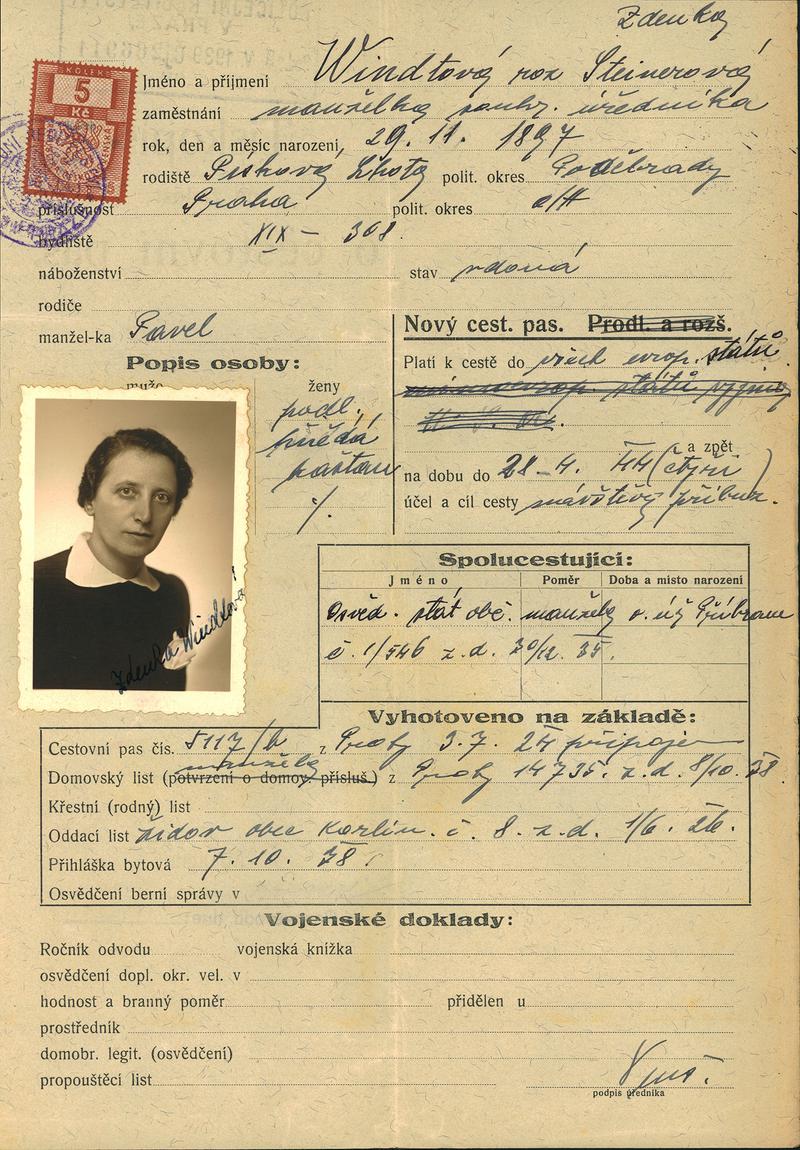 Zdenka
KOLEK
5
Kč
Jméno a příjmení Windtová roz Steinerová
zaměstnání manželka soukr. úředníka
rok, den a měsíc narození 29. 11. 1897
rodiště Písková Lhota polit. okres Poděbrady
příslušnost Praha polit. okres
bydliště XIX – 308.
náboženství stav vdaná
rodiče
manžel-ka Pavel
Nový cest. pas. Prodl. a rozš.
Platí k cestě do všech evrop. států
a zpět
na dobu do 28. 4. 44 (čtyři)
účel a cíl cesty návštěvy příbuz.
Popis osoby:
muže ženy
podl.
hnědá
kaštan
./.
Zdenka Windtová
Spolucestující:
Jméno Poměr Doba a místo narození
Osvěd. stát obč. manžela o. úř Příbram
č. 1/546 z. d. 30/12. 35.
Vyhotoveno na základě:
Cestovní pas čís. 5117/b z Prahy 3. 7. 24 připojen
manžela
Domovský list (potvrzení o domov. přísluš.) z Prahy 14735. z. d. 8/10. 38
Křestní (rodný) list
Oddací list židov obec Karlín. č. 8. z. d. 1/6. 26.
Přihláška bytová 7. 10. 38.
Osvědčení berní správy v
Vojenské doklady:
Ročník odvodu vojenská knížka
osvědčení dopl. okr. vel. v
hodnost a branný poměr přidělen u
prostředník
domobr. legit. (osvědčení)
propouštěcí list
podpis úředníka